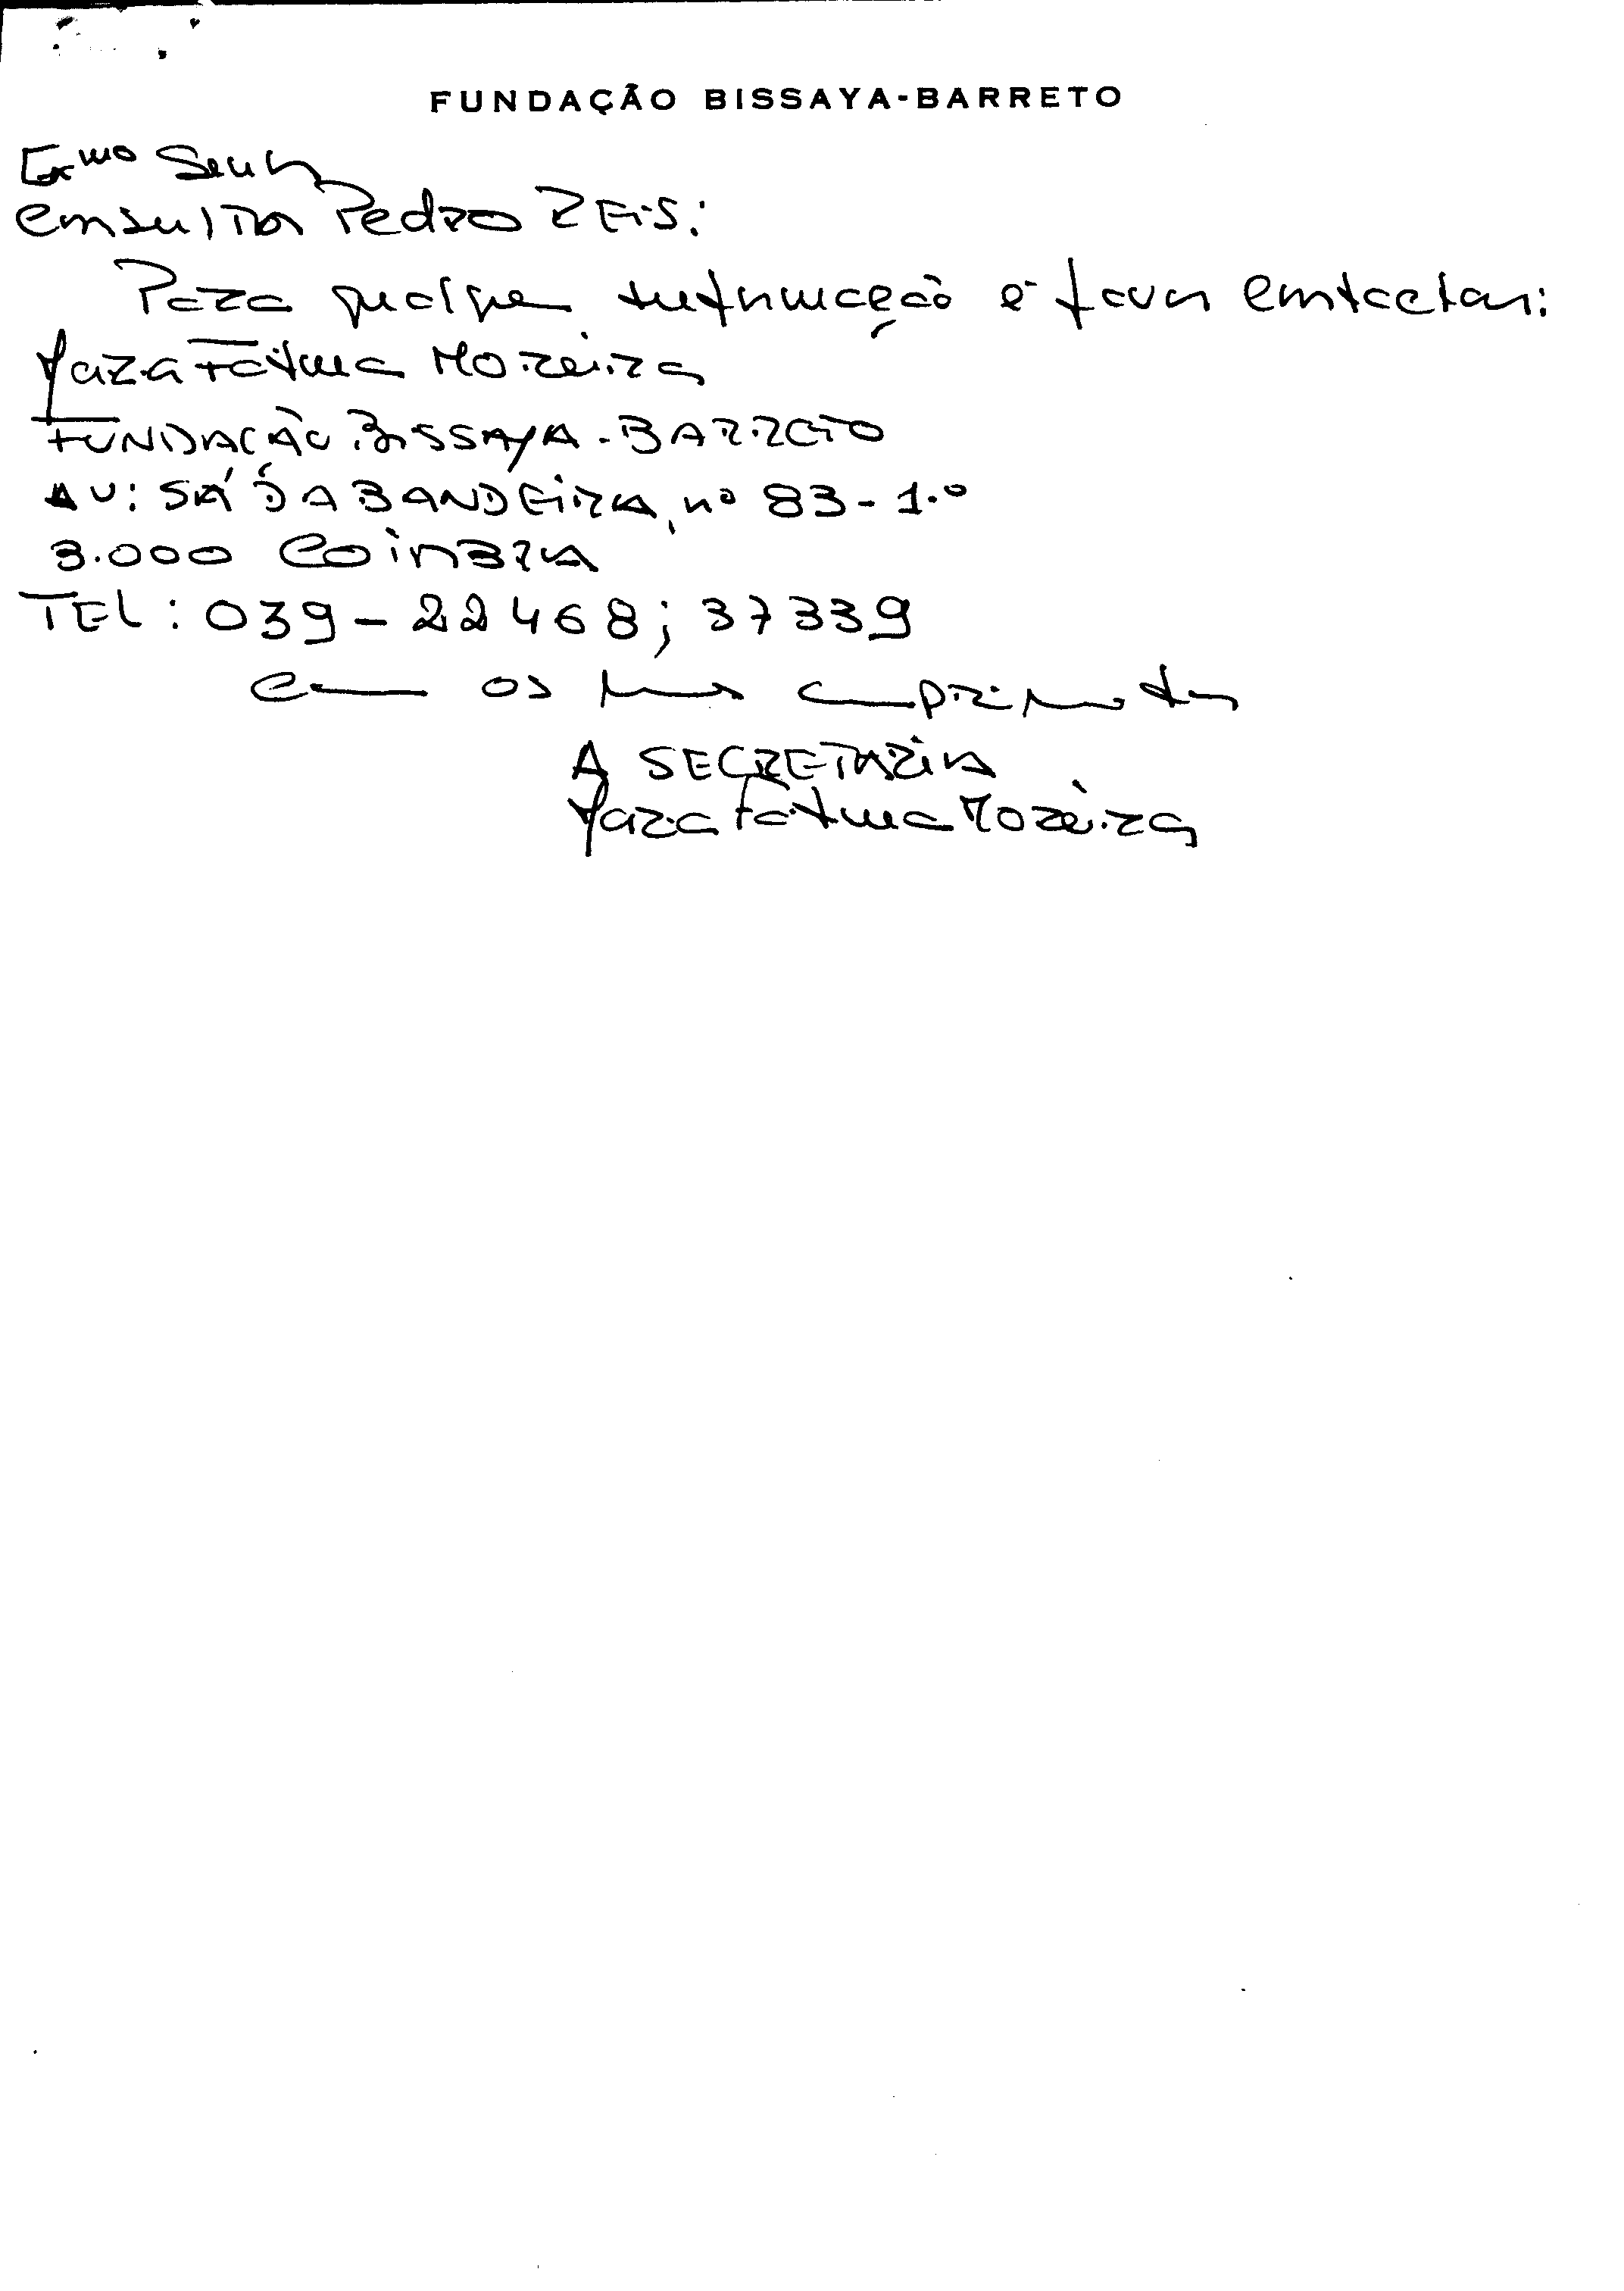 FUNDAÇÃO BISSAYA-BARRETO
Exmo Senhor
Consultor Pedro REIS:
Para qualquer informação é favor contactar:
Fátima Moreira
FUNDAÇÃO BISSAYA-BARRETO
AV: SÁ DA BANDEIRA, nº 83-1.º
3.000 COIMBRA
TEL: 039-22468; 37339
Com os cumprimentos
A SECRETÁRIA
Fátima Moreira